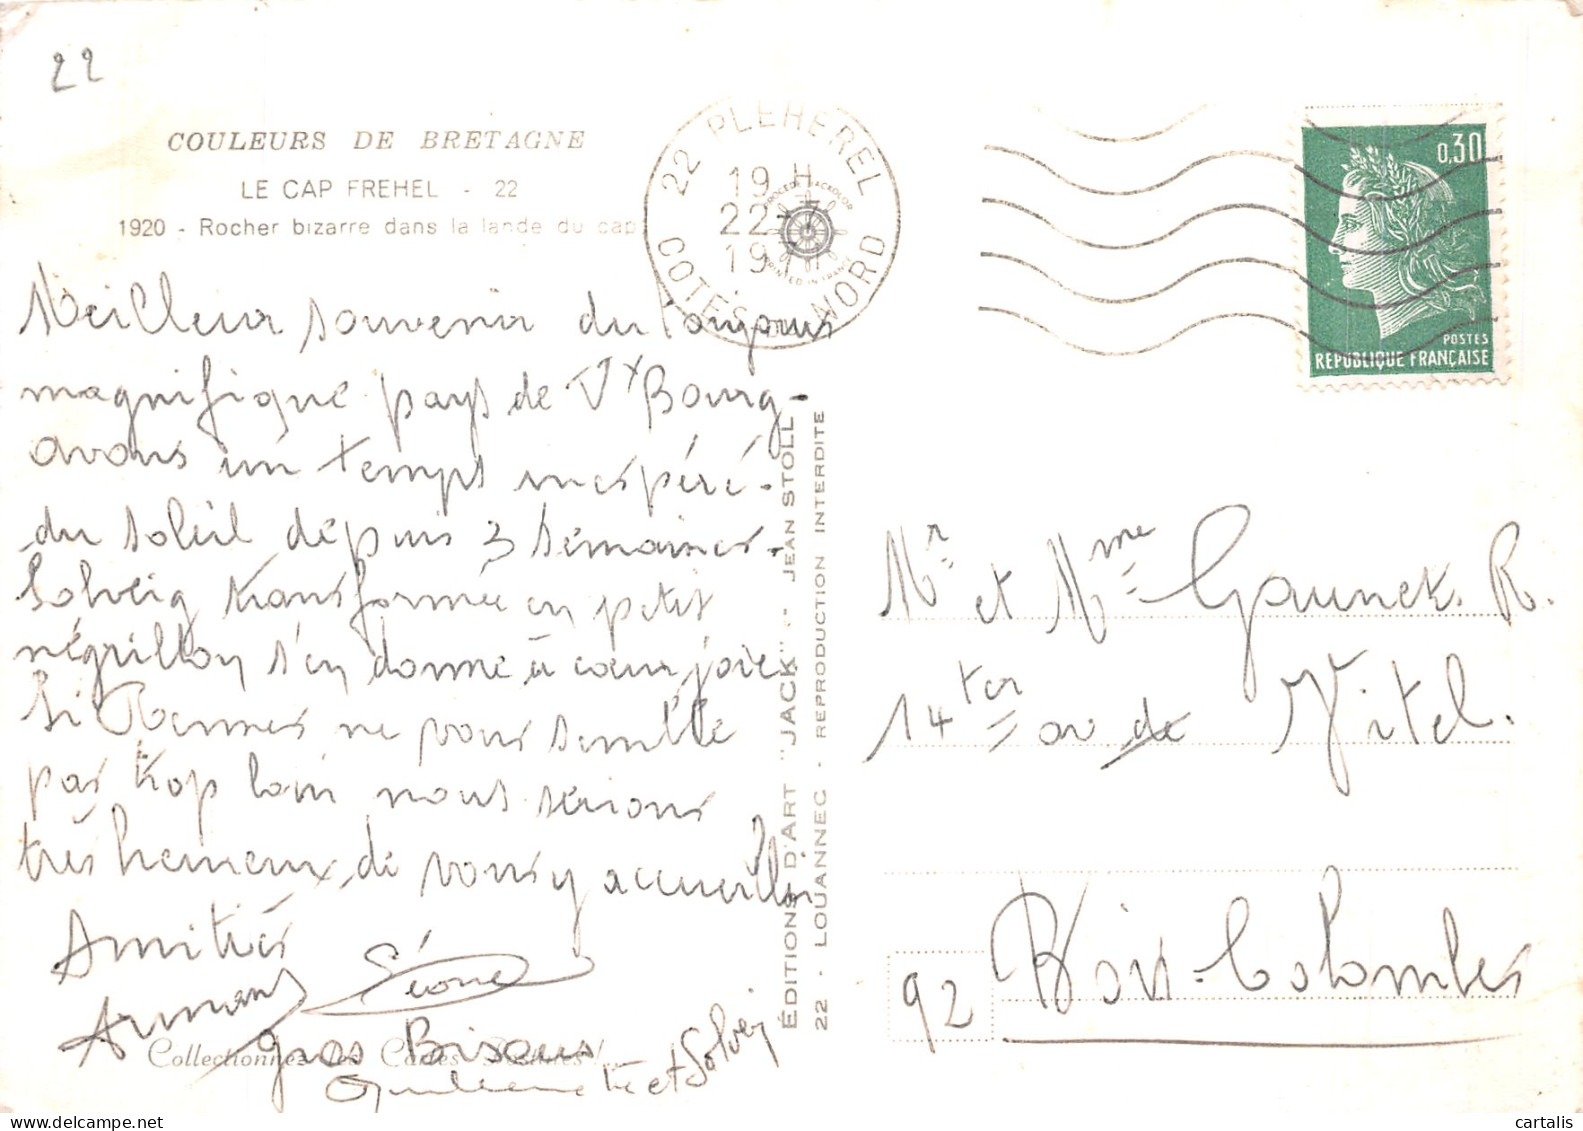 22
COULEURS DE BRETAGNE
LE CAP FREHEL - 22
1920 - Rocher bizarre dans la lande du cap
22 PLEHEREL
19 H
22-7
19
COTES DU NORD
0,30
POSTES
REPUBLIQUE FRANÇAISE
Meilleur souvenir du toujours
magnifique pays de Vx Bourg-
avons un temps inespéré-
du soleil depuis 3 semaines-
Solveig transformée en petit
négrillon s'en donne à coeur joie
Si Rennes ne vous semble
pas trop loin nous serions
très heureux de vous y accueillir
Amitiés
Armand
gros Bisous
et Solveig
Collectionnez les Cartes Postales !...
ÉDITIONS D'ART "JACK" - JEAN STOLL
22 - LOUANNEC - REPRODUCTION INTERDITE
Mr et Mme Gaunek. R.
14 ter av de Vitel.
92 Bois-Colombes
cartalis